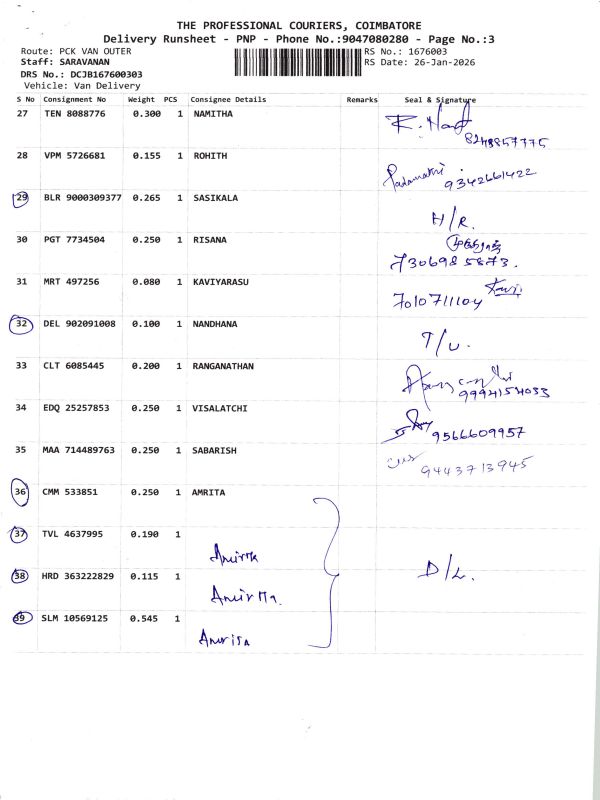 THE PROFESSIONAL COURIERS, COIMBATORE
Delivery Runsheet - PNP - Phone No.:9047080280 - Page No.:3
Route: PCK VAN OUTER RS No.: 1676003
Staff: SARAVANAN RS Date: 26-Jan-2026
DRS No.: DCJB167600303
Vehicle: Van Delivery
S No Consignment No Weight PCS Consignee Details Remarks Seal & Signature
27 TEN 8088776 0.300 1 NAMITHA
28 VPM 5726681 0.155 1 ROHITH
9342661422
29 BLR 9000309377 0.265 1 SASIKALA
H/R.
30 PGT 7734504 0.250 1 RISANA
7306985873.
31 MRT 497256 0.080 1 KAVIYARASU
7010711104
32 DEL 902091008 0.100 1 NANDHANA
T/U.
33 CLT 6085445 0.200 1 RANGANATHAN
9994154033
34 EDQ 25257853 0.250 1 VISALATCHI
9566609957
35 MAA 714489763 0.250 1 SABARISH
9443713945
36 CMM 533851 0.250 1 AMRITA
37 TVL 4637995 0.190 1
Amirta
38 HRD 363222829 0.115 1 D/L.
Amirta.
39 SLM 10569125 0.545 1
Amrita